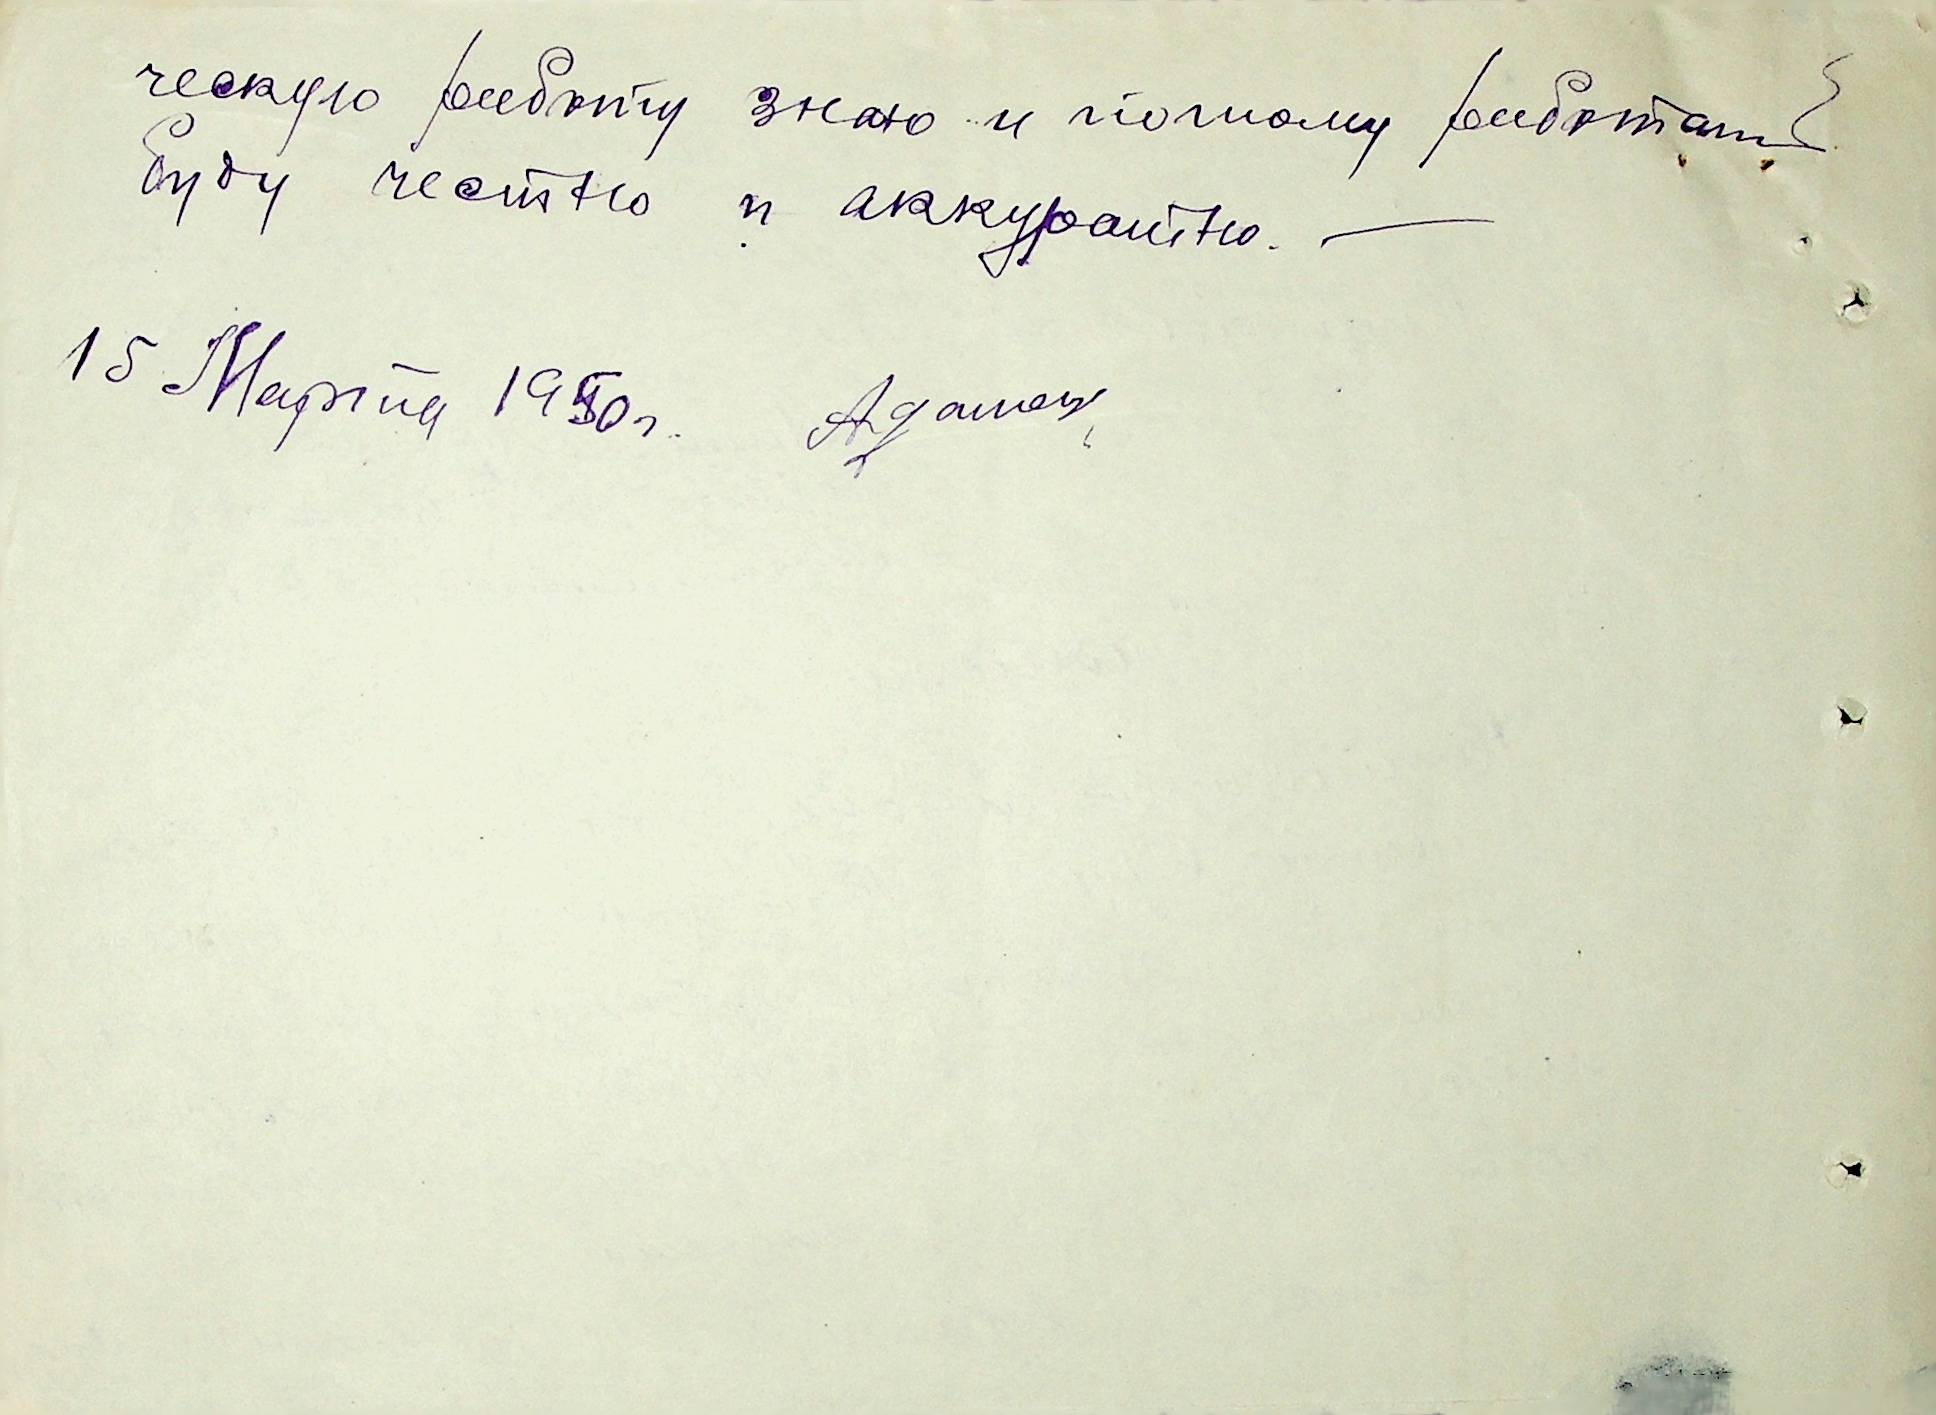 ческую работу знаю и потому работать
буду честно и аккуратно. —
15 Марта 1950 г. Адамец